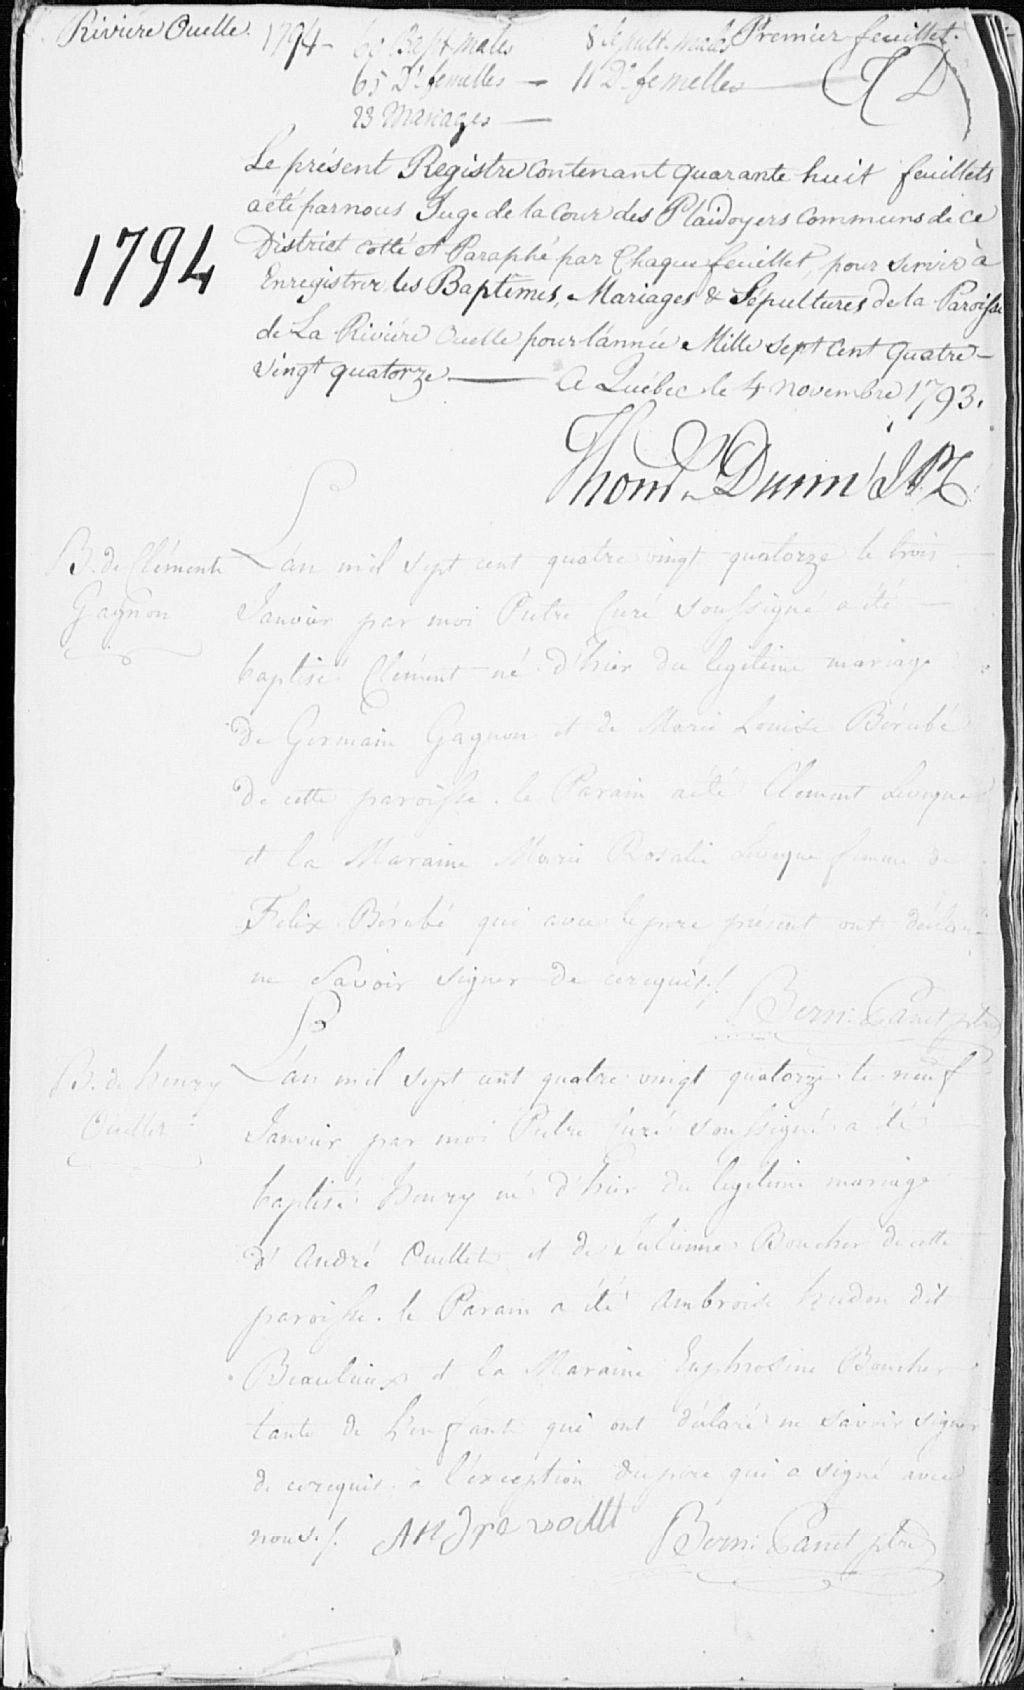 Riviére Ouelle. 1794 - 60 Bapt. males 8 sepult. males Premier feuillet.
65 Do. femelles — 11 Do. femelles — TD
23 Mariages —
Le présent Registre contenant quarante huit feuillets
a été par nous Juge de la Cour des Plaidoyers communs de ce
1794
District cotté et Paraphé par Chaque feuillet, pour servir à
Enregistrer les Baptêmes, Mariages & Sépultures de la Paroisse
de La Riviére Ouelle pour l'année Mille sept cent quatre-
vingt quatorze — A Québec le 4 novembre 1793.
Thom. Dunn
B. de Clément
Gagnon
L'an mil sept cent quatre vingt quatorze le trois
Janvier par moi Prêtre Curé soussigné a été
baptisé Clément né d'hier du legitime mariage
de Germain Gagnon et de Marie Louise Bérubé
de cette paroisse. le Parain a été Clement Leveque
et la Maraine Marie Rosalie Leveque femme de
Felix Bérubé qui avec le pere présent ont déclaré
ne Savoir signer de ce requis./.
Bern: Panet ptre
B. de henry
Ouellet
L'an mil sept cent quatre vingt quatorze le neuf
Janvier par moi Prêtre Curé soussigné a été
baptisé henry né d'hier du legitime mariage
d'André Ouellet et de Julienne Boucher de cette
paroisse. le Parain a été Ambroise hudon dit
Beaulieux et la Maraine Euphrosine Boucher
tante de L'enfant qui ont déclaré ne savoir signer
de ce requis à l'éxception du pere qui a signé avec
nous./. Andre voellet Bern: Panet ptre